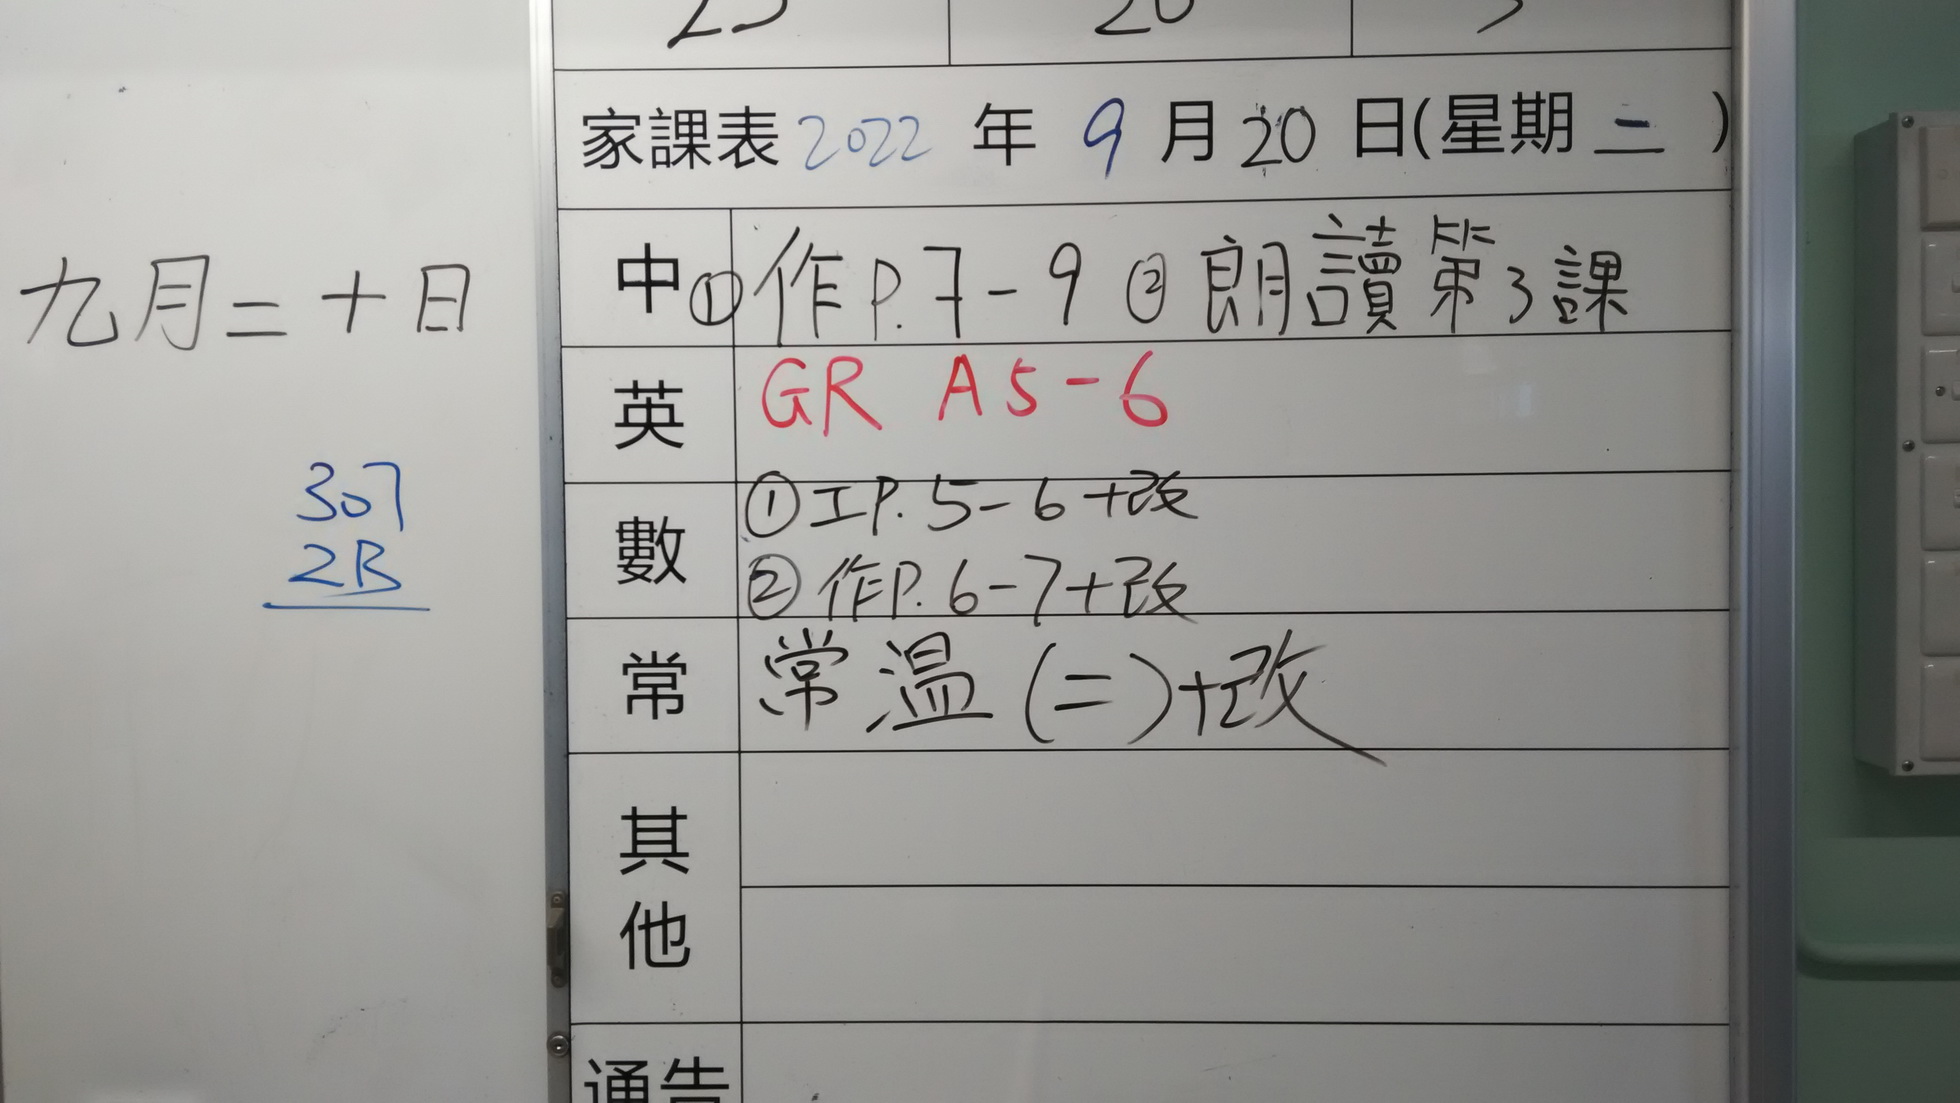 九月二十日
307
2B
家課表 2022 年 9 月 20 日(星期 二 )
中 ①作P.7-9 ②朗讀第3課
英 GR A5-6
數 ①工P.5-6+改
②作P.6-7+改
常 常溫(二)+改
其他
通告